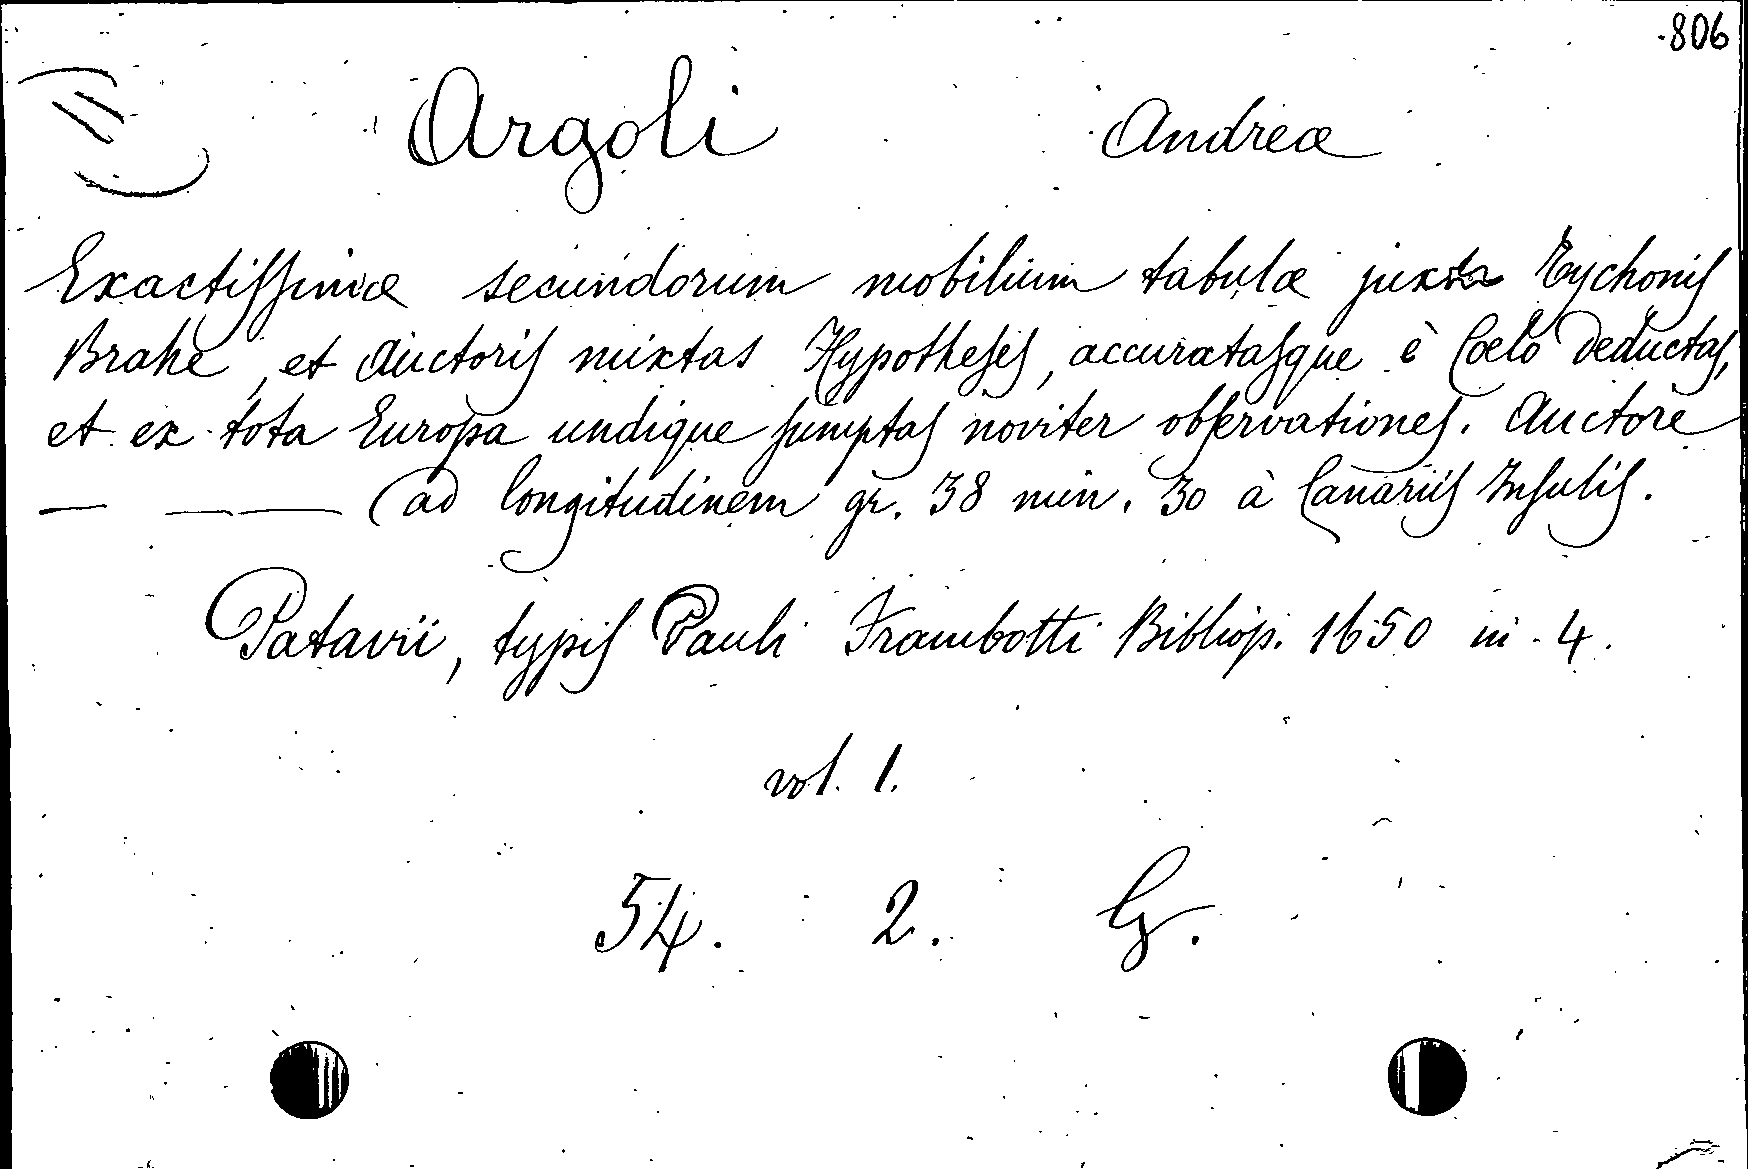 806
Argoli Andrea
Exactissimæ secundorum mobilium tabulæ juxta Tychonis
Brahe, et Auctoris mixtas Hypotheses, accuratasque è Cœlo deductas,
et ex tota Europa undique sumptas noviter observationes. Auctore
— —— (ad longitudinem gr. 38 min. 30 à Canariis Insulis.
Patavii, typis Pauli Frambotti Bibliop. 1650 in 4.
vol. 1.
54. 2. G.